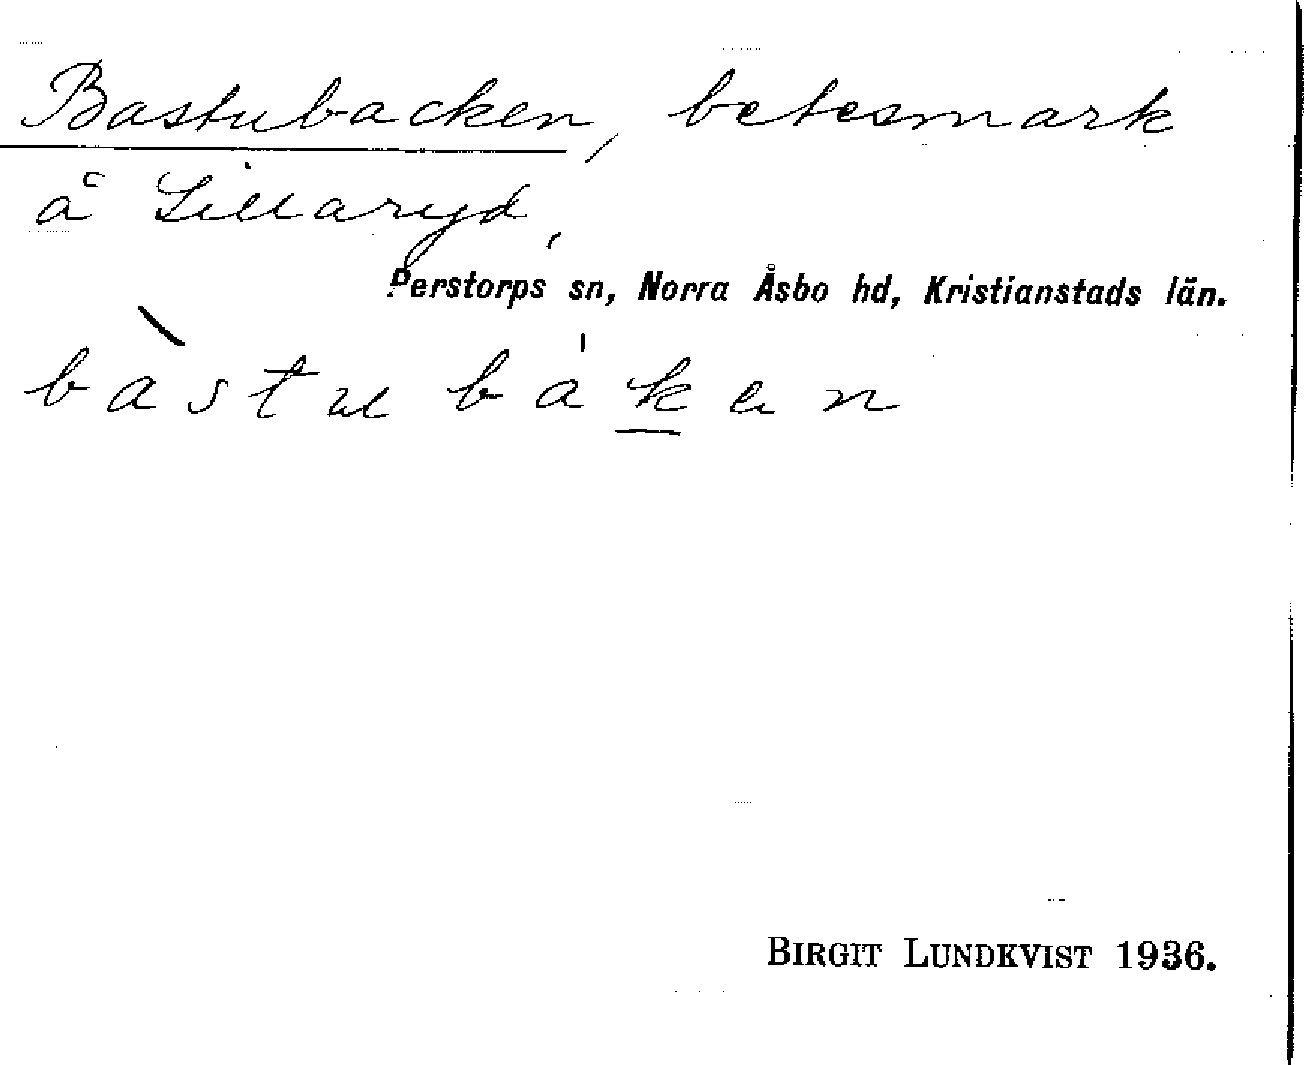 Bastubacken, betesmark
å Lillaryd,
Perstorps sn, Norra Åsbo hd, Kristianstads län.
bàstubákan
BIRGIT LUNDKVIST 1936.